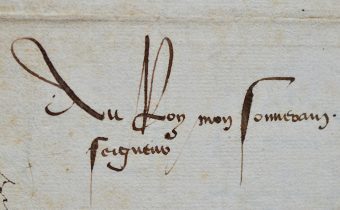 Au Roy mon souuerain.
seigneur